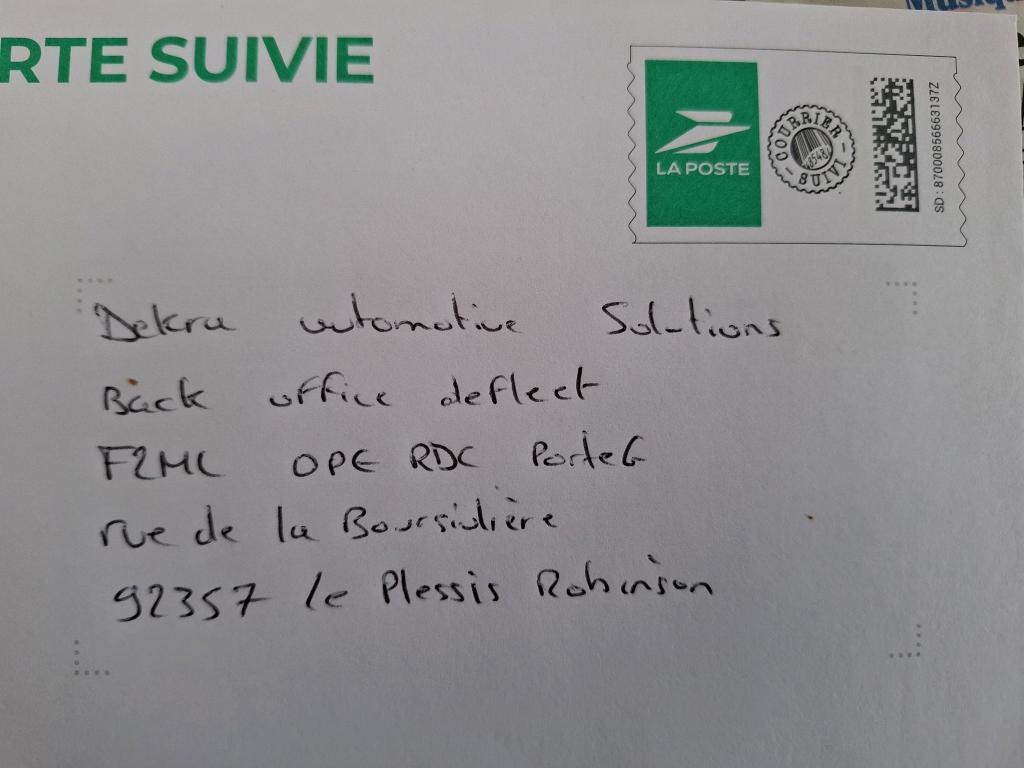 RTE SUIVIE
LA POSTE
COURRIER
SUIVI
SD : 87000856663137Z
Dekra automotive Solutions
Back office defleet
F2ML OPE RDC Porte G
rue de la Boursidière
92357 le Plessis Robinson